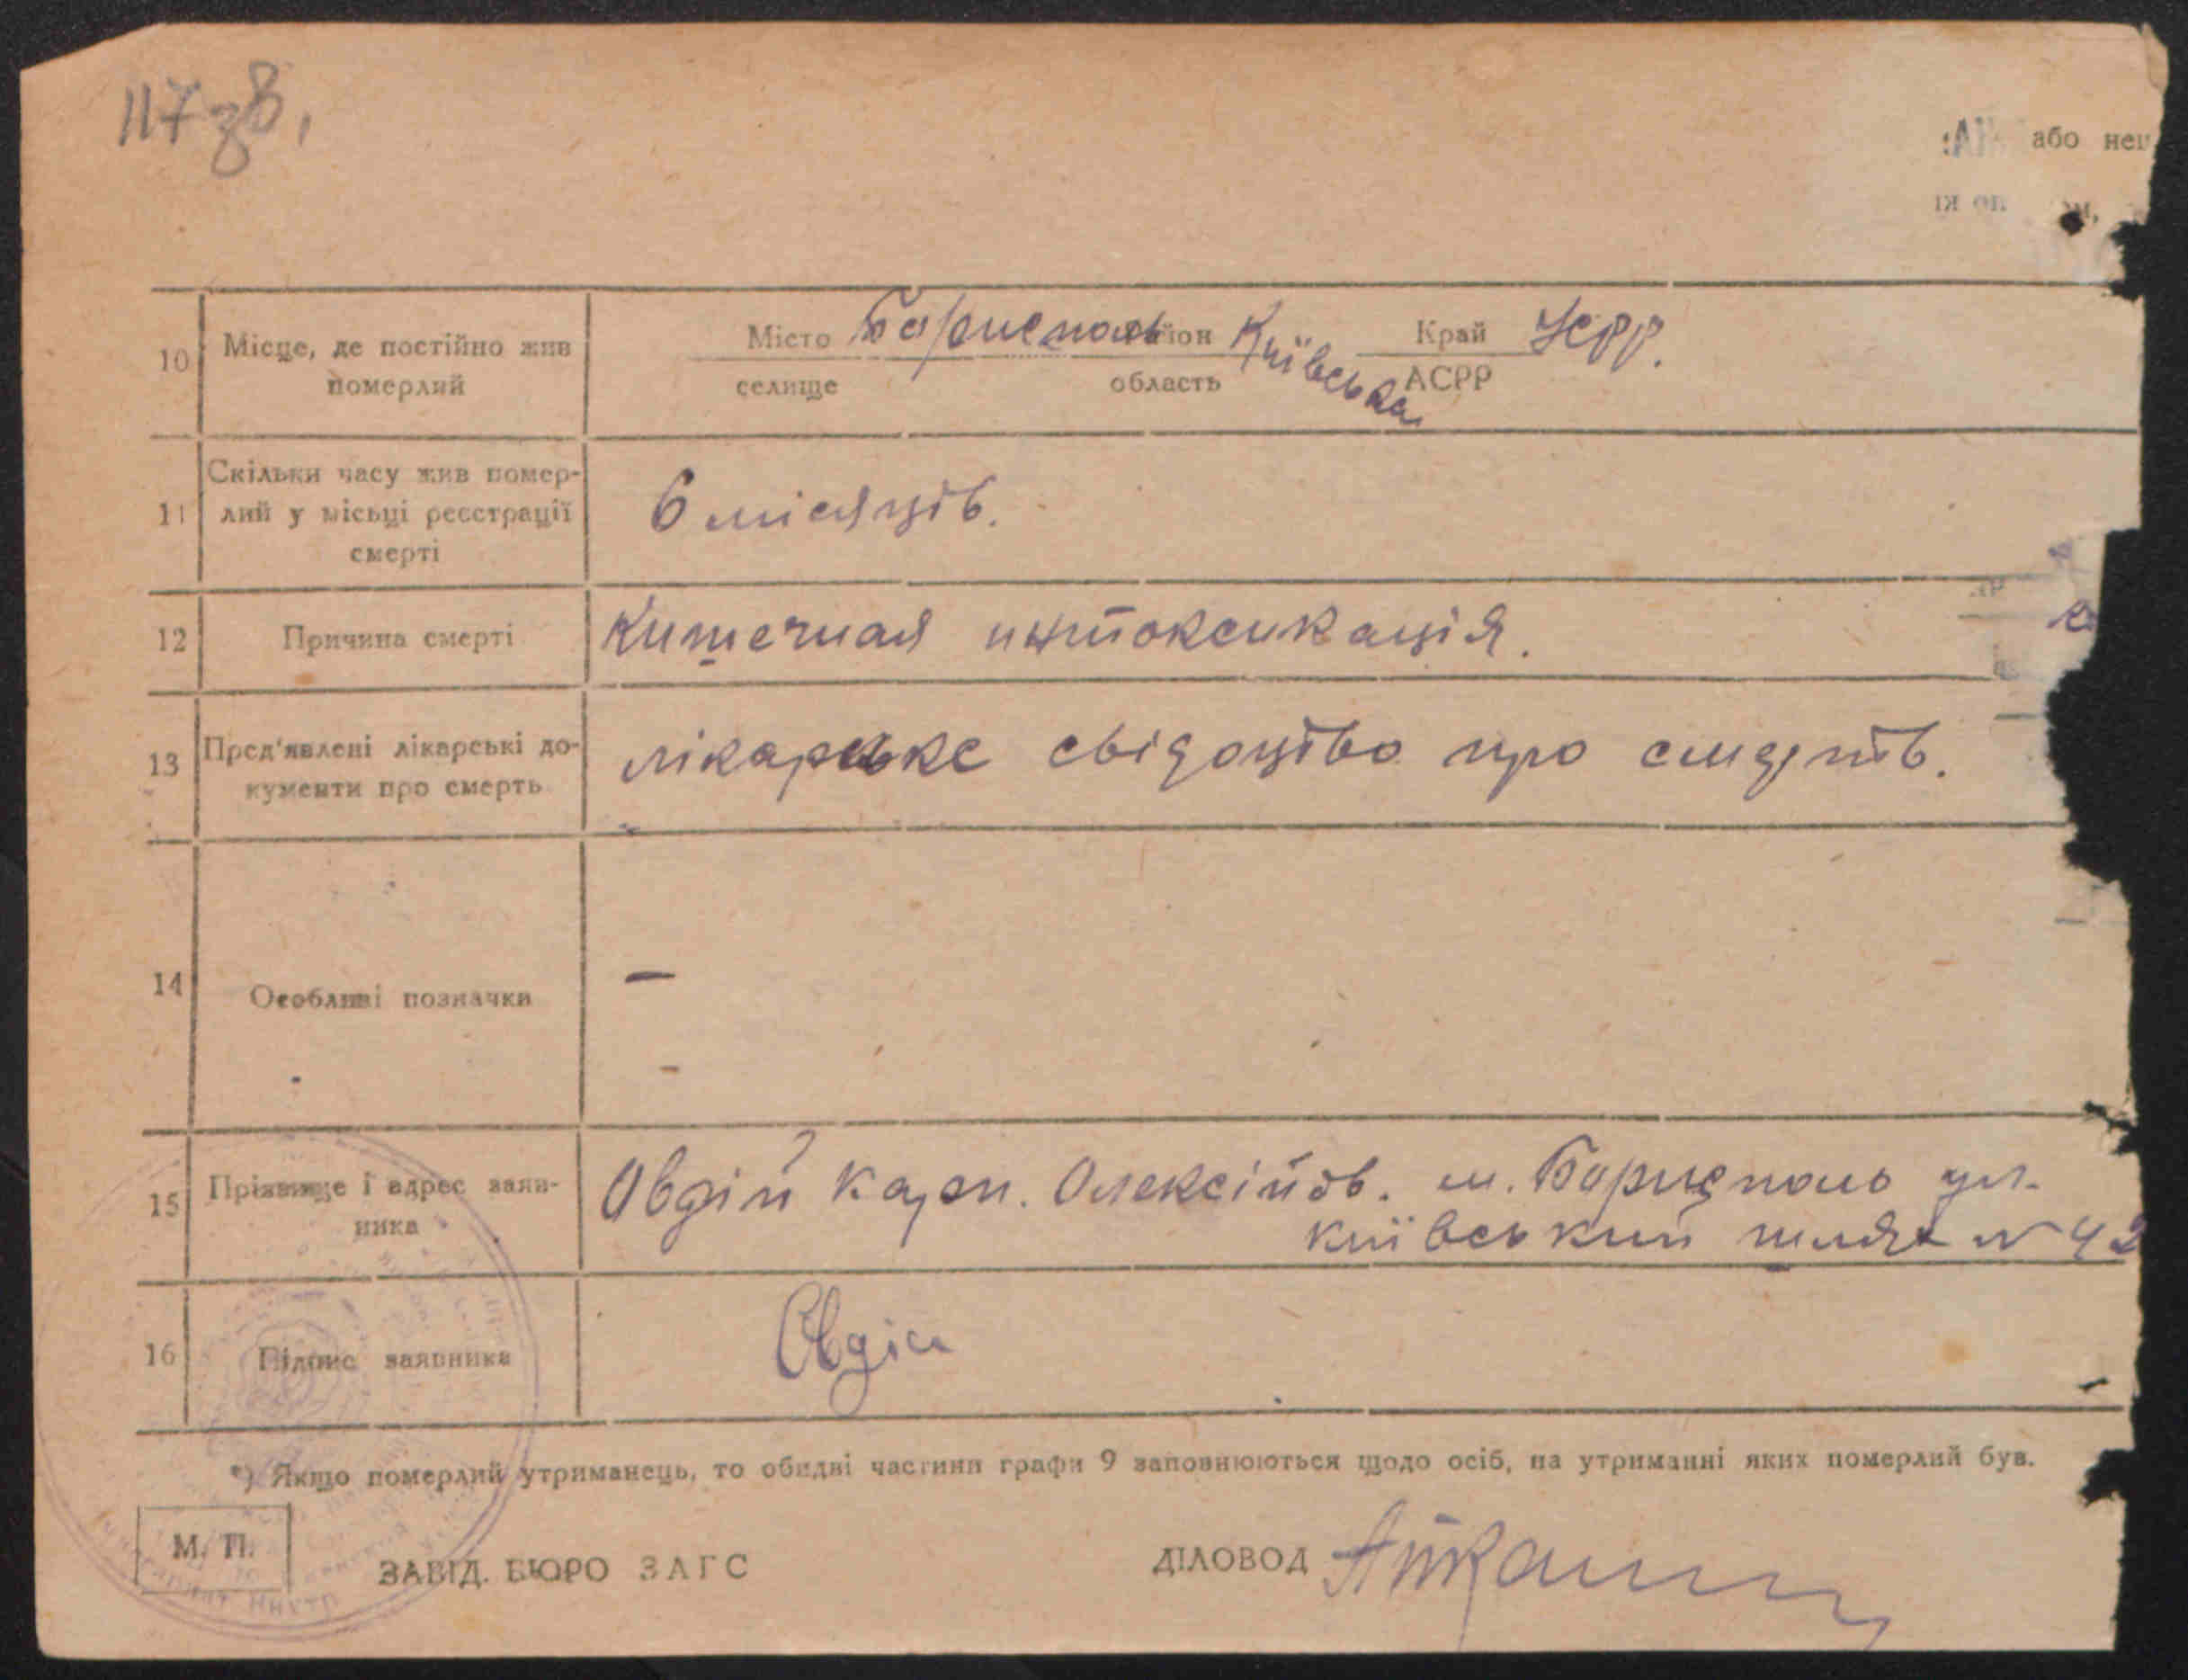 117зв,
або неп
10 Місце, де постійно жив померлий
Місто Бориспол район Київська Край УСРР.
селище область АСРР
11 Скільки часу жив помер-
лий у місьці реєстрації
смерті
6 місяців.
12 Причина смерті
Кишечная интоксикація.
13 Пред'явлені лікарські до-
кументи про смерть
лікарське свідоцтво про смерть.
14 Особливі позначки
—
15 Прізвище і адрес заяв-
ника
Овдій Карп. Олексійов. м. Бориспол ул.
київський шлях № 42
16 Підпис заявника
Овдій
*) Якщо померлий утриманець, то обидві частини графи 9 заповнюються щодо осіб, на утриманні яких померлий був.
М. П.
ЗАВІД. БЮРО ЗАГС
ДІЛОВОД